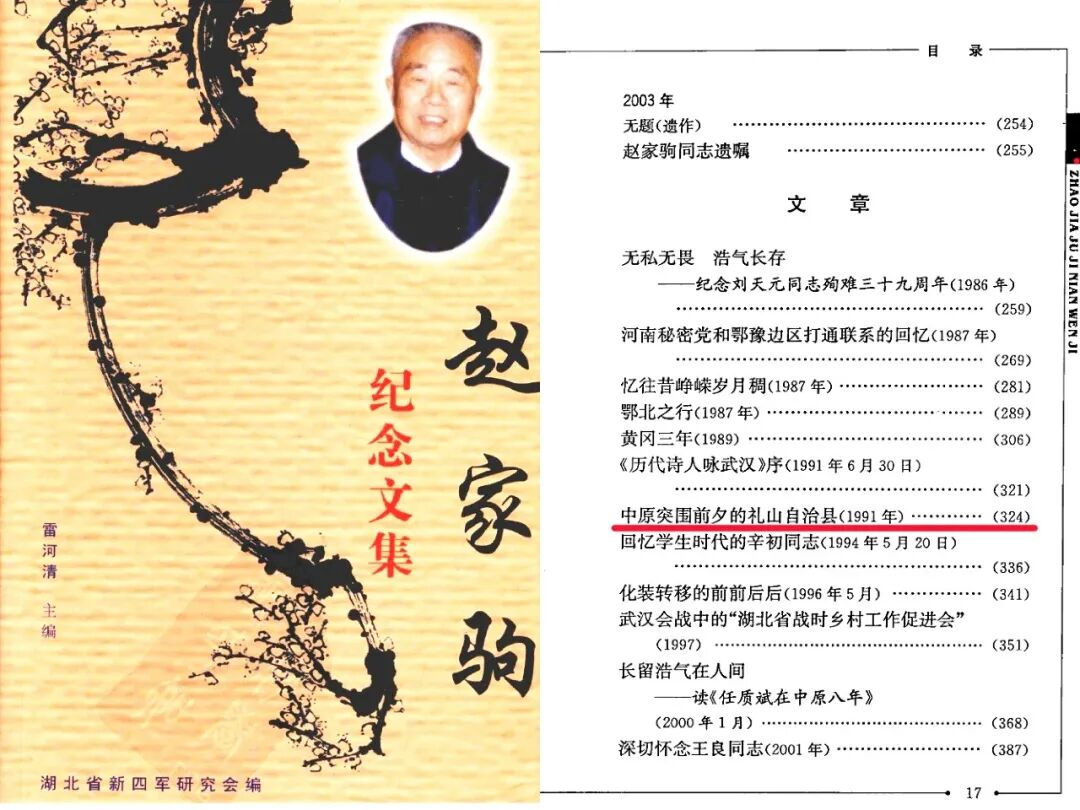 赵家驹
纪念文集
雷河清 主编
湖北省新四军研究会编
目 录
2003年
无题(遗作) ……………………………… (254)
赵家驹同志遗嘱 ……………………… (255)
文 章
无私无畏 浩气长存
——纪念刘天元同志殉难三十九周年(1986年)
……………………………………… (259)
河南秘密党和鄂豫边区打通联系的回忆(1987年)
……………………………………… (269)
忆往昔峥嵘岁月稠(1987年) ……………… (281)
鄂北之行(1987年) ……………………… (289)
黄冈三年(1989) ………………………… (306)
《历代诗人咏武汉》序(1991年6月30日)
……………………………………… (321)
中原突围前夕的礼山自治县(1991年) ………… (324)
回忆学生时代的辛初同志(1994年5月20日)
……………………………………… (336)
化装转移的前前后后(1996年5月) ………… (341)
武汉会战中的“湖北省战时乡村工作促进会”
(1997) ……………………………… (351)
长留浩气在人间
——读《任质斌在中原八年》
(2000年1月) ………………………… (368)
深切怀念王良同志(2001年) ……………… (387)
ZHAO JIA JU JI NIAN WEN JI
17